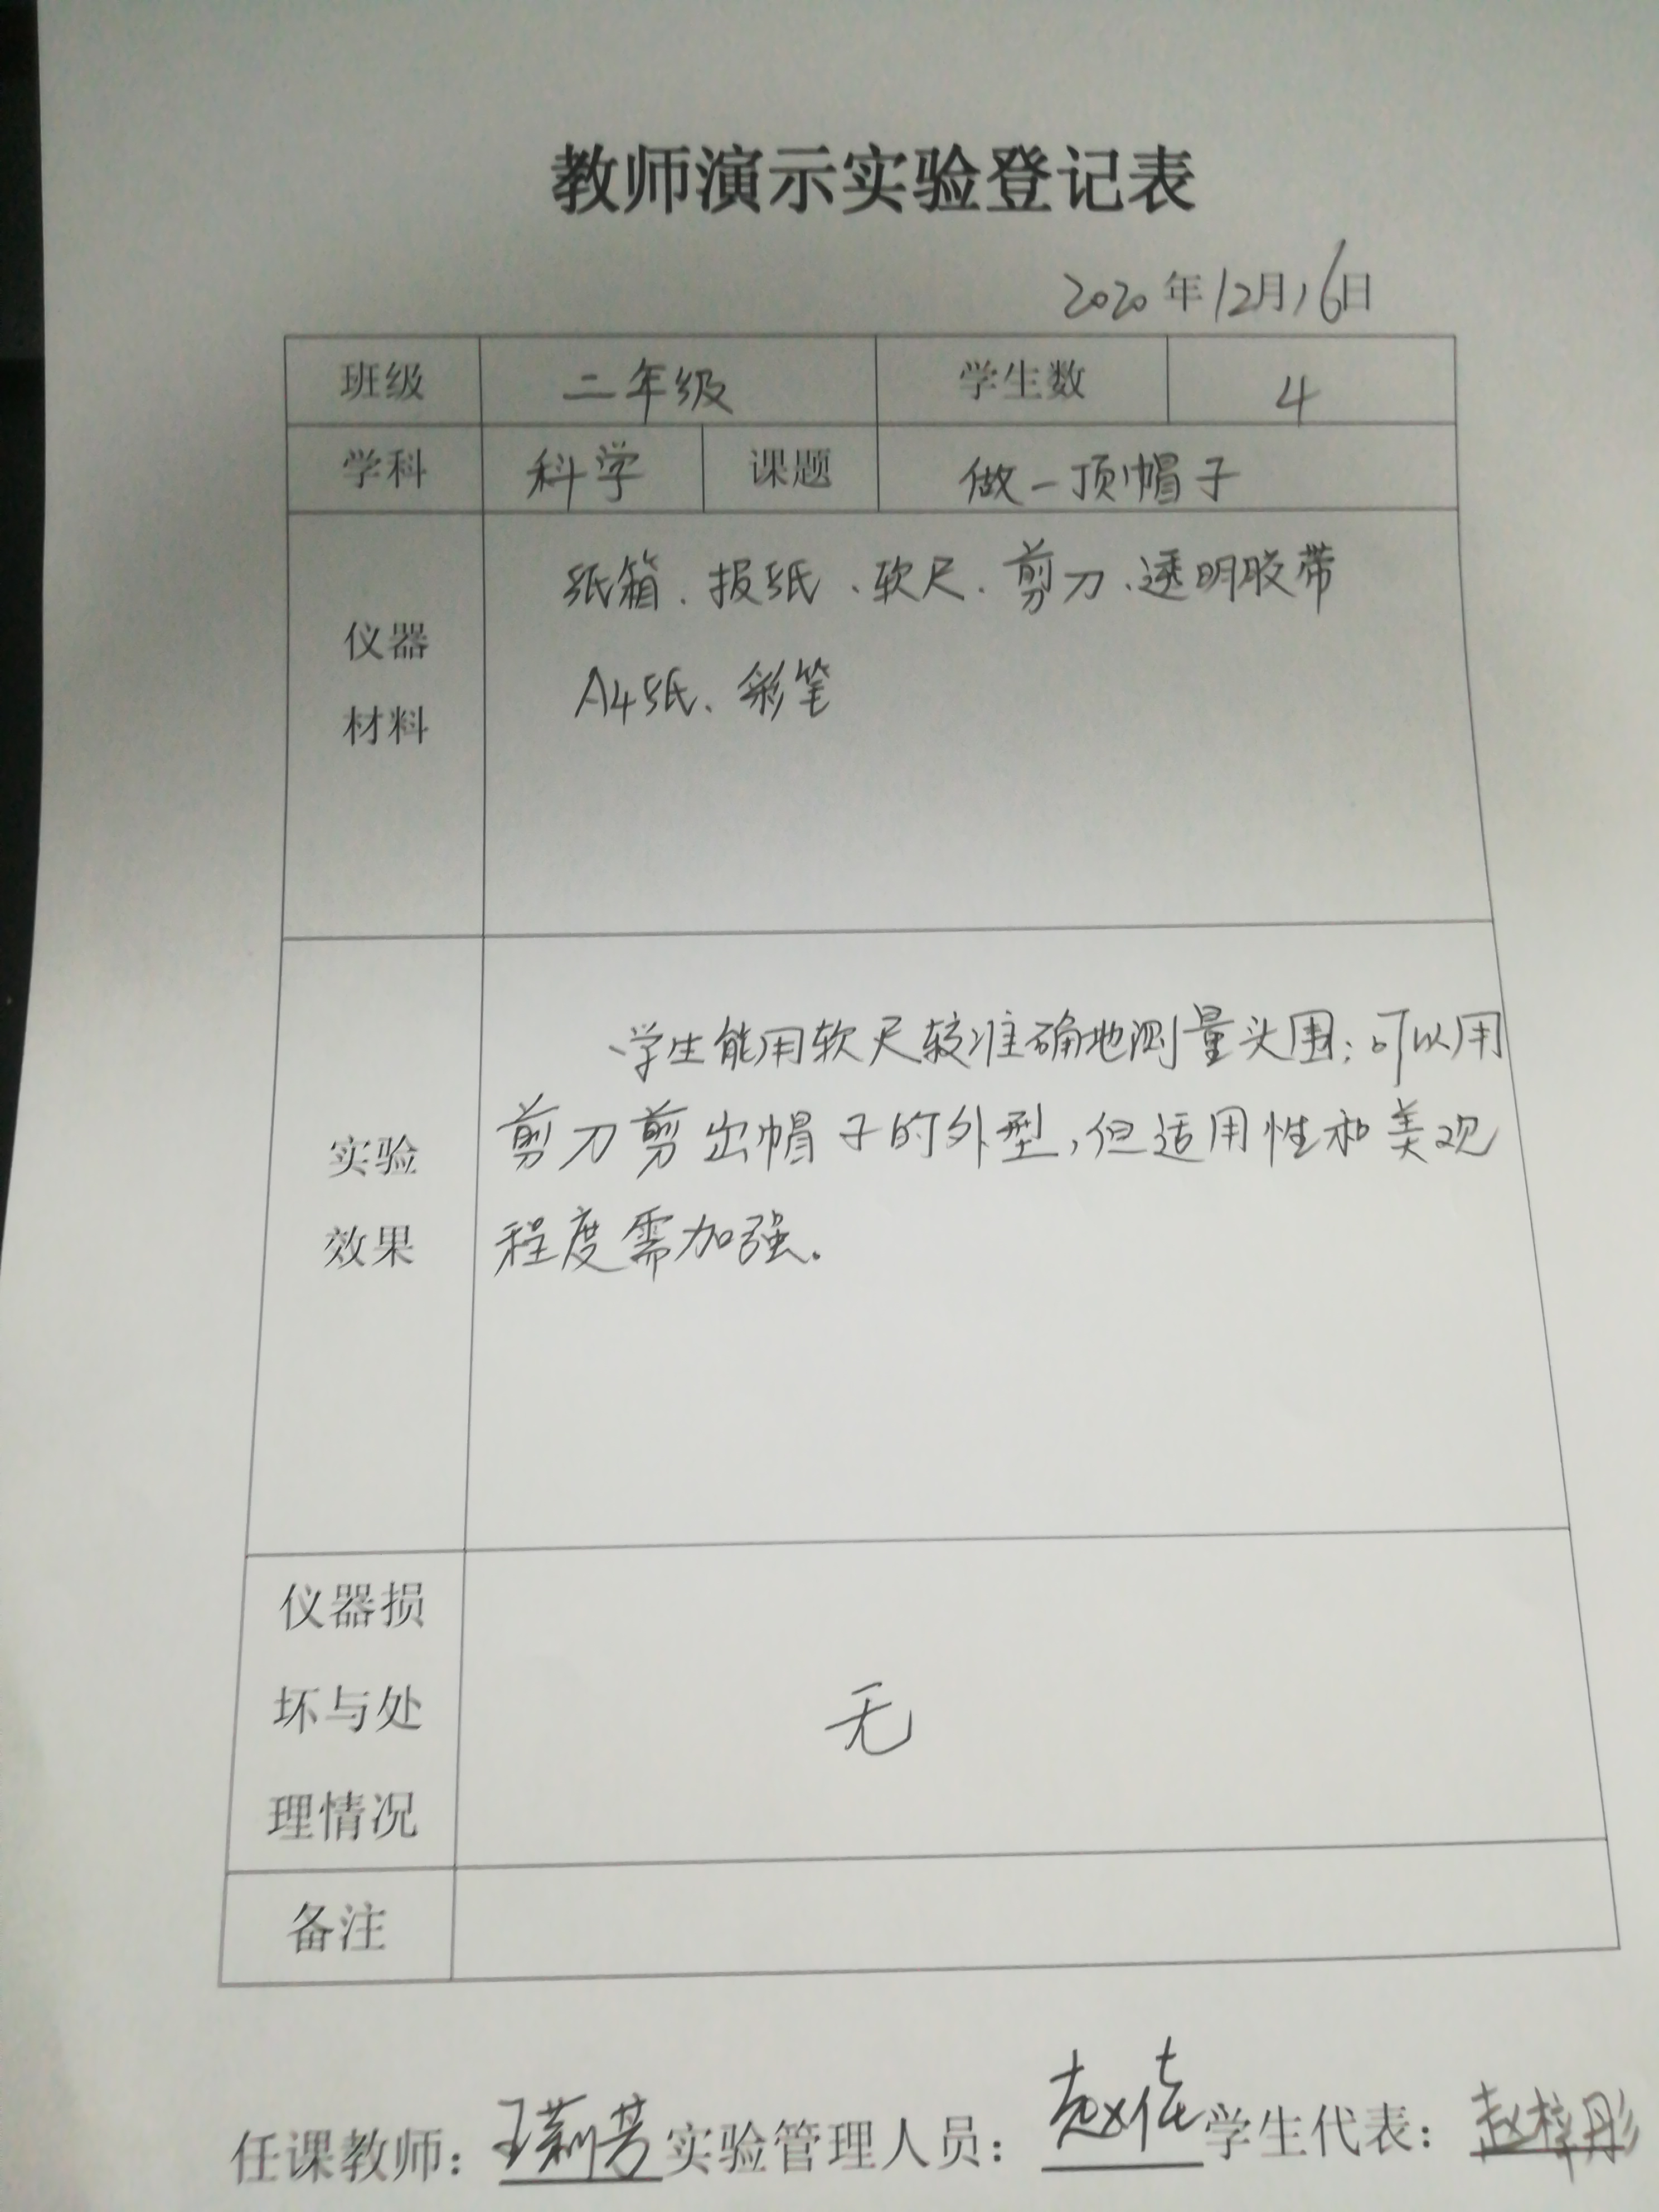 教师演示实验登记表
2020年12月16日
班级 二年级 学生数 4
学科 科学 课题 做一顶帽子
仪器
材料
纸箱、报纸、软尺、剪刀、透明胶带
A4纸、彩笔
实验
效果
学生能用软尺较准确地测量头围;可以用
剪刀剪出帽子的外型,但适用性和美观
程度需加强。
仪器损
坏与处
理情况
无
备注
任课教师:王莉芳 实验管理人员:赵 学生代表:赵梓彤